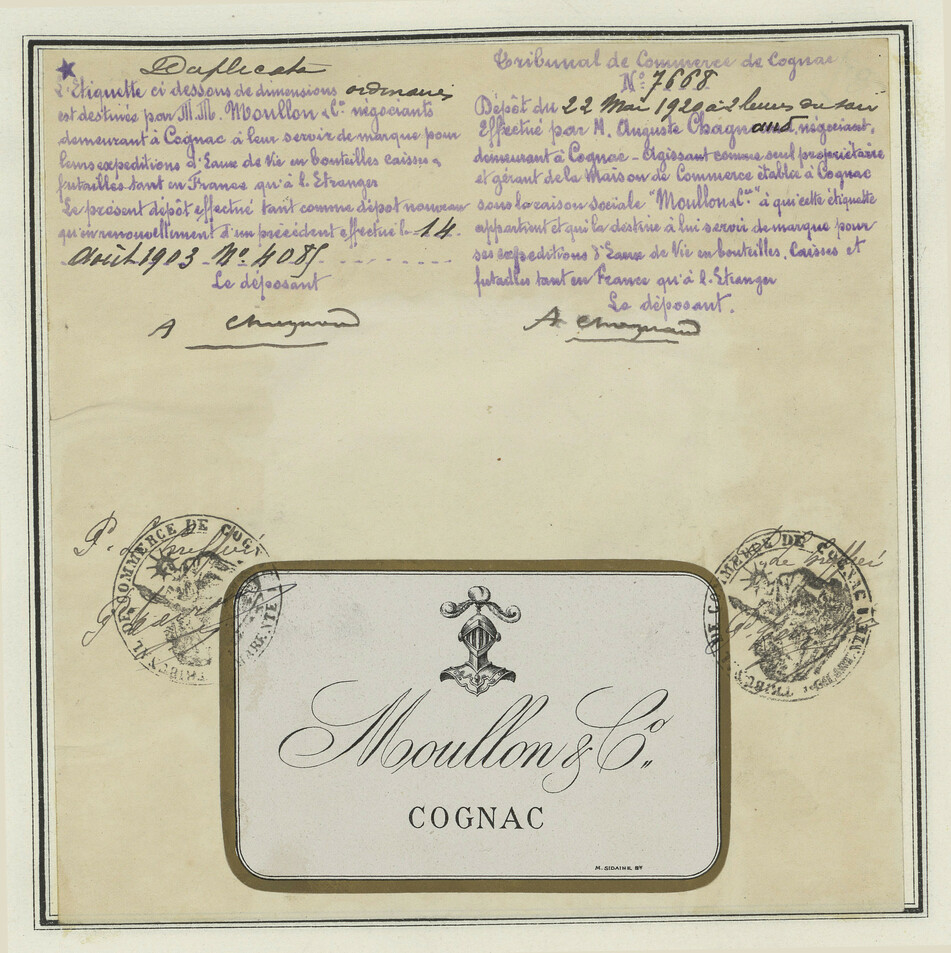 Duplicata
L'Etiquette ci dessous de dimensions ordinaires
est destinée par M.M. Moullon & Cº négociants
demeurant à Cognac à leur servir de marque pour
leurs expéditions d'Eaux de Vie en bouteilles caisses &
futailles tant en France qu'à l'Etranger
Le présent dépôt effectué tant comme dépôt nouveau
qu'en renouvellement d'un précédent effectué le 14
Août 1903 Nº 4085
Le déposant
A Chagnaud
Tribunal de Commerce de Cognac
Nº 7668
Dépôt du 22 Mai 1920 à 2 heures du soir
Effectué par M. Auguste Chagnaud, négociant,
demeurant à Cognac - Agissant comme seul propriétaire
et gérant de la Maison de Commerce établie à Cognac
sous la raison sociale "Moullon & Cie" à qui cette étiquette
appartient et qui la destine à lui servir de marque pour
ses expéditions d'Eaux de Vie en bouteilles, Caisses et
futailles tant en France qu'à l'Etranger
Le déposant.
A Chagnaud
TRIBUNAL DE COMMERCE DE COGNAC
CHARENTE
TRIBUNAL DE COMMERCE DE COGNAC
CHARENTE
Moullon & Cº
COGNAC
M. SIDAINE BX